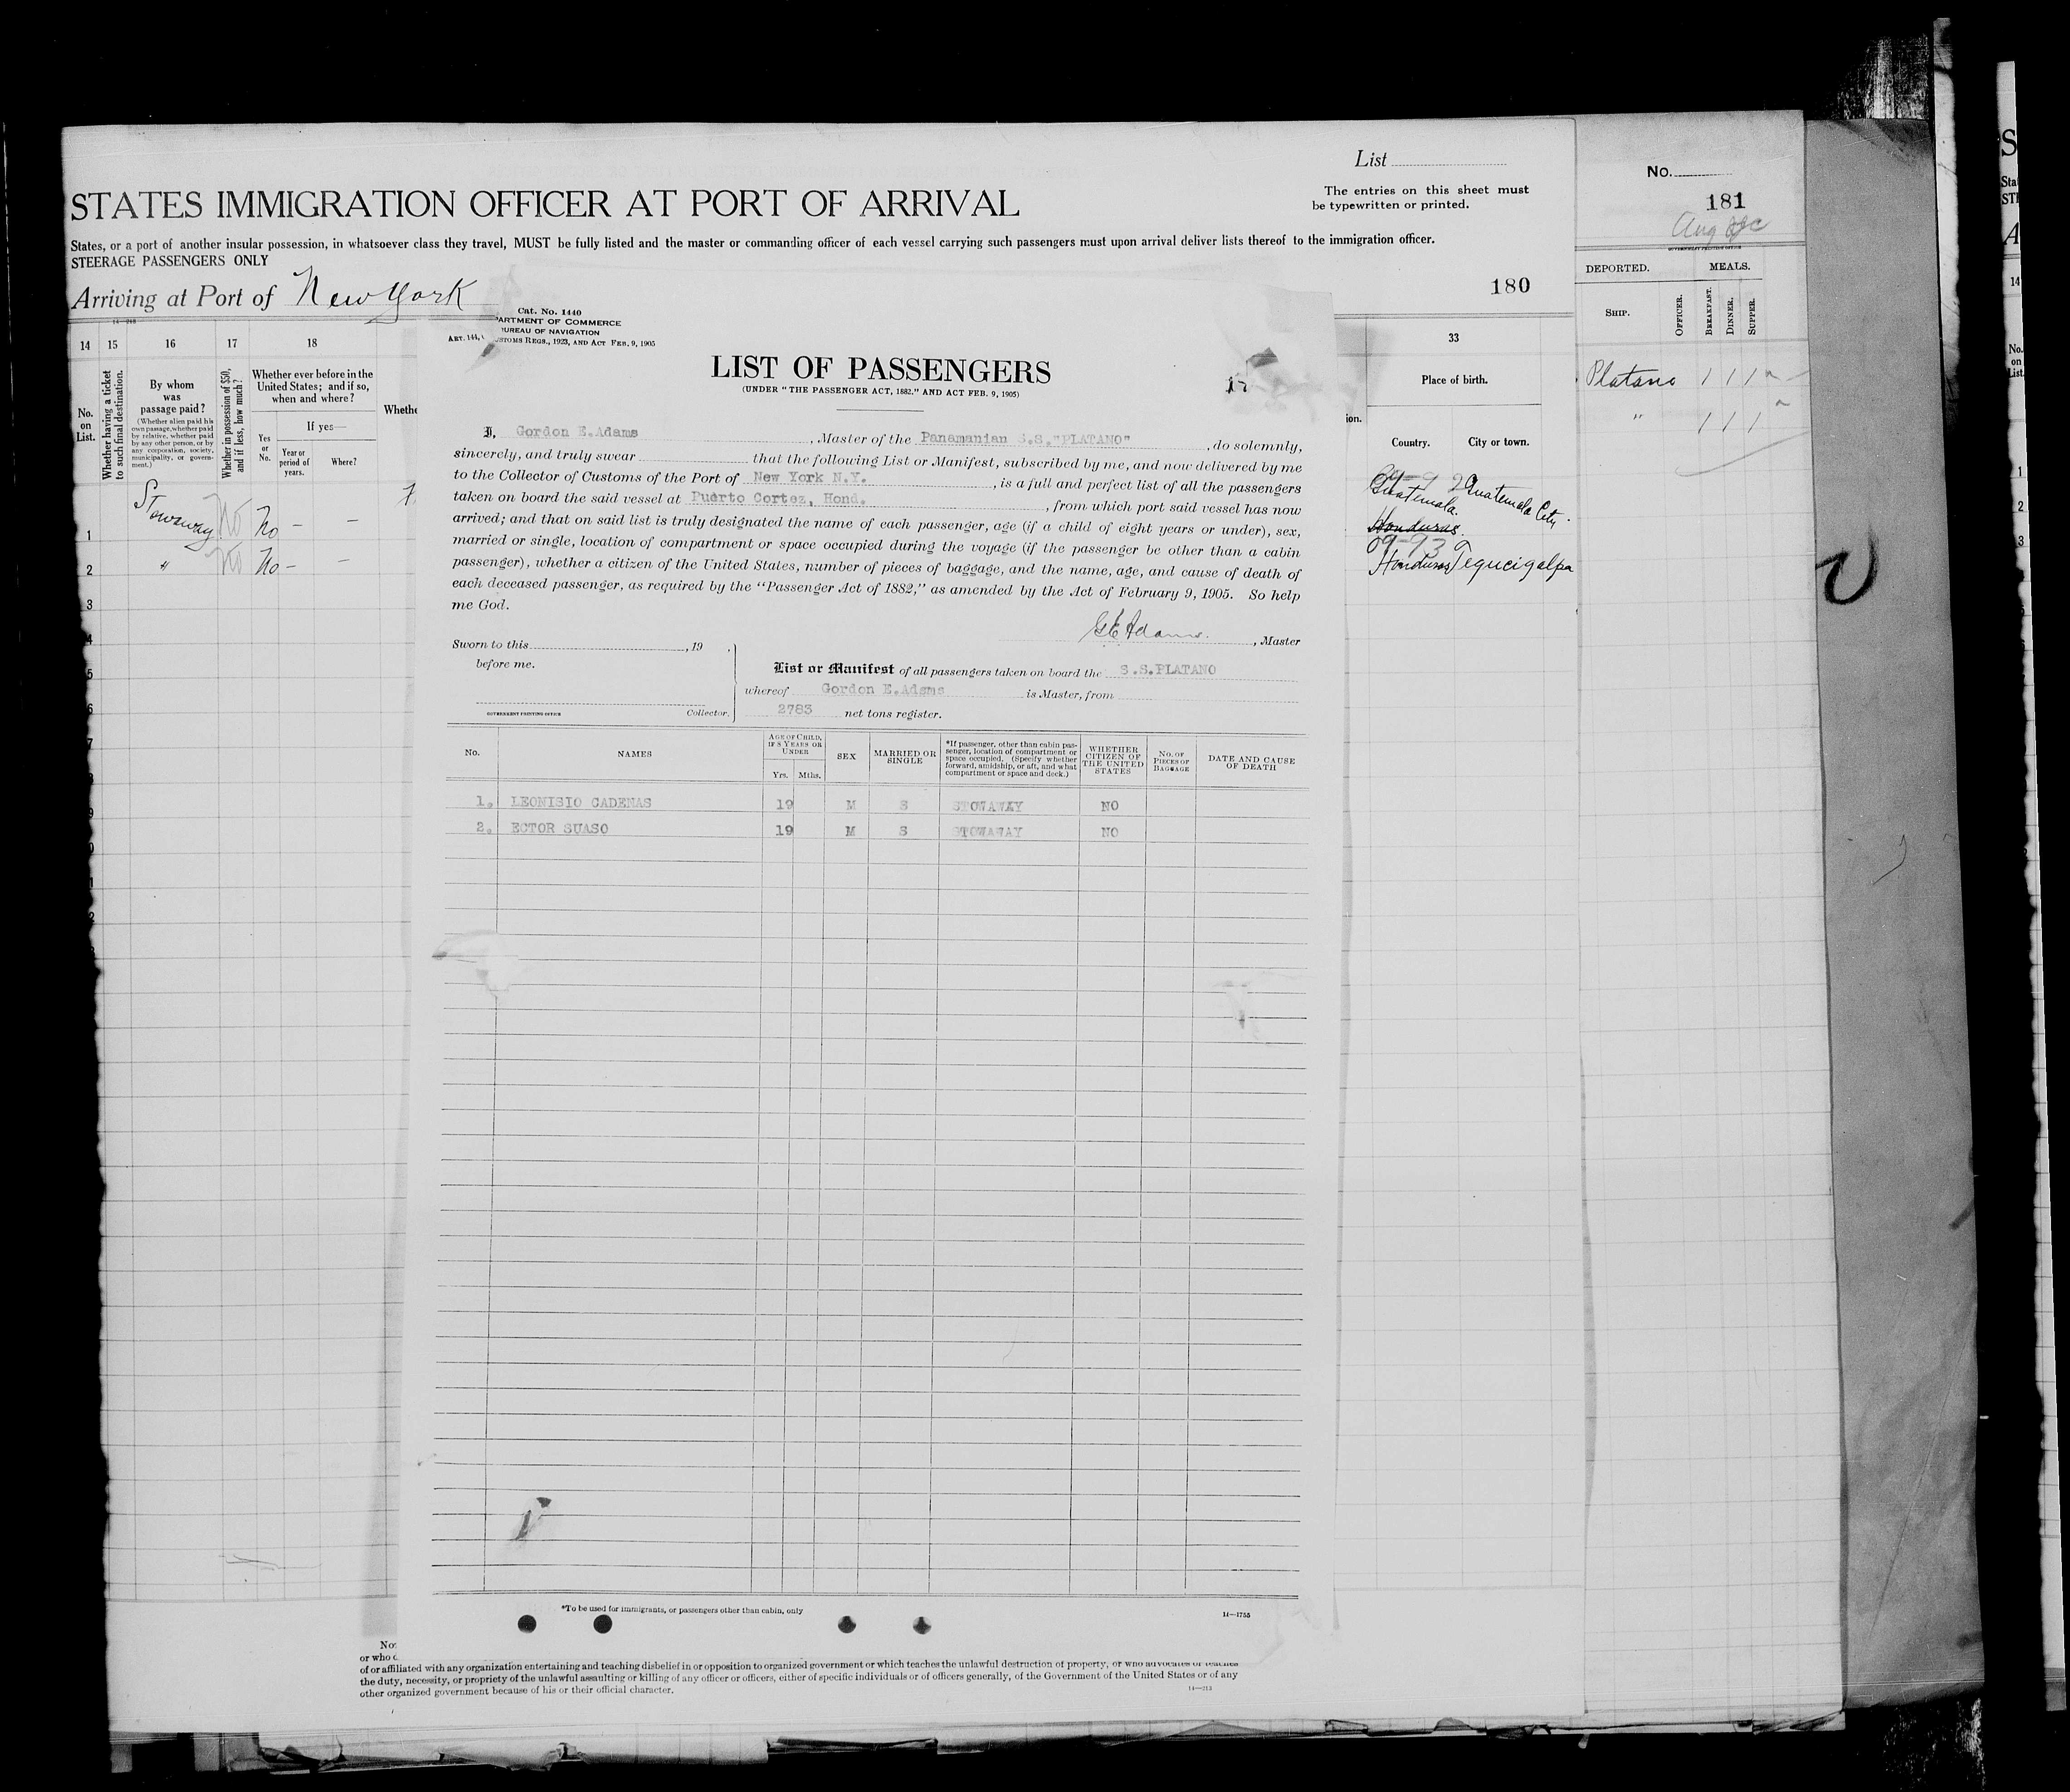 List
The entries on this sheet must
be typewritten or printed.
STATES IMMIGRATION OFFICER AT PORT OF ARRIVAL
States, or a port of another insular possession, in whatsoever class they travel, MUST be fully listed and the master or commanding officer of each vessel carrying such passengers must upon arrival deliver lists thereof to the immigration officer.
STEERAGE PASSENGERS ONLY
Arriving at Port of New York
180
No.
181
Aug
DEPORTED. MEALS.
SHIP. OFFICER. BREAKFAST. DINNER. SUPPER.
Platano 1 1 1
" 1 1 1
14 15 16 17 18
No. on List.
Whether having a ticket to such final destination.
By whom was passage paid?
(Whether alien paid his own passage, whether paid by relative, whether paid by any other person, or by any corporation, society, municipality, or government.)
Whether in possession of $50, and if less, how much?
Whether ever before in the United States; and if so, when and where?
Yes or No.
If yes—
Year or period of years.
Where?
1 Stowaway No No – –
2 " No No – –
3
33
Place of birth.
Country. City or town.
Guatemala. Guatemala City.
Honduras.
Honduras Tegucigalpa
Cat. No. 1440
ARTMENT OF COMMERCE
UREAU OF NAVIGATION
STOMS REGS., 1923, AND ACT FEB. 9, 1905
LIST OF PASSENGERS
(UNDER "THE PASSENGER ACT, 1882," AND ACT FEB. 9, 1905)
I, Gordon E.Adams, Master of the Panamanian S.S."PLATANO", do solemnly,
sincerely, and truly swear that the following List or Manifest, subscribed by me, and now delivered by me
to the Collector of Customs of the Port of New York N.Y., is a full and perfect list of all the passengers
taken on board the said vessel at Puerto Cortez, Hond., from which port said vessel has now
arrived; and that on said list is truly designated the name of each passenger, age (if a child of eight years or under), sex,
married or single, location of compartment or space occupied during the voyage (if the passenger be other than a cabin
passenger), whether a citizen of the United States, number of pieces of baggage, and the name, age, and cause of death of
each deceased passenger, as required by the "Passenger Act of 1882," as amended by the Act of February 9, 1905. So help
me God.
G E Adams, Master
Sworn to this , 19 .
before me.
Collector.
GOVERNMENT PRINTING OFFICE
List or Manifest of all passengers taken on board the S.S.PLATANO
whereof Gordon E.Adams is Master, from
2783 net tons register.
No. NAMES AGE OF CHILD, IF 8 YEARS OR UNDER Yrs. Mths. SEX MARRIED OR SINGLE *If passenger, other than cabin passenger, location of compartment or space occupied. (Specify whether forward, amidship, or aft, and what compartment or space and deck.) WHETHER CITIZEN OF THE UNITED STATES NO. OF PIECES OF BAGGAGE DATE AND CAUSE OF DEATH
1. LEONISIO CADENAS 19 M S STOWAWAY NO
2. ECTOR SUASO 19 M S STOWAWAY NO
*To be used for immigrants, or passengers other than cabin, only
11—1755
of or affiliated with any organization entertaining and teaching disbelief in or opposition to organized government or which teaches the unlawful destruction of property, or who advocates or teaches
the duty, necessity, or propriety of the unlawful assaulting or killing of any officer or officers, either of specific individuals or of officers generally, of the Government of the United States or of any
other organized government because of his or their official character.